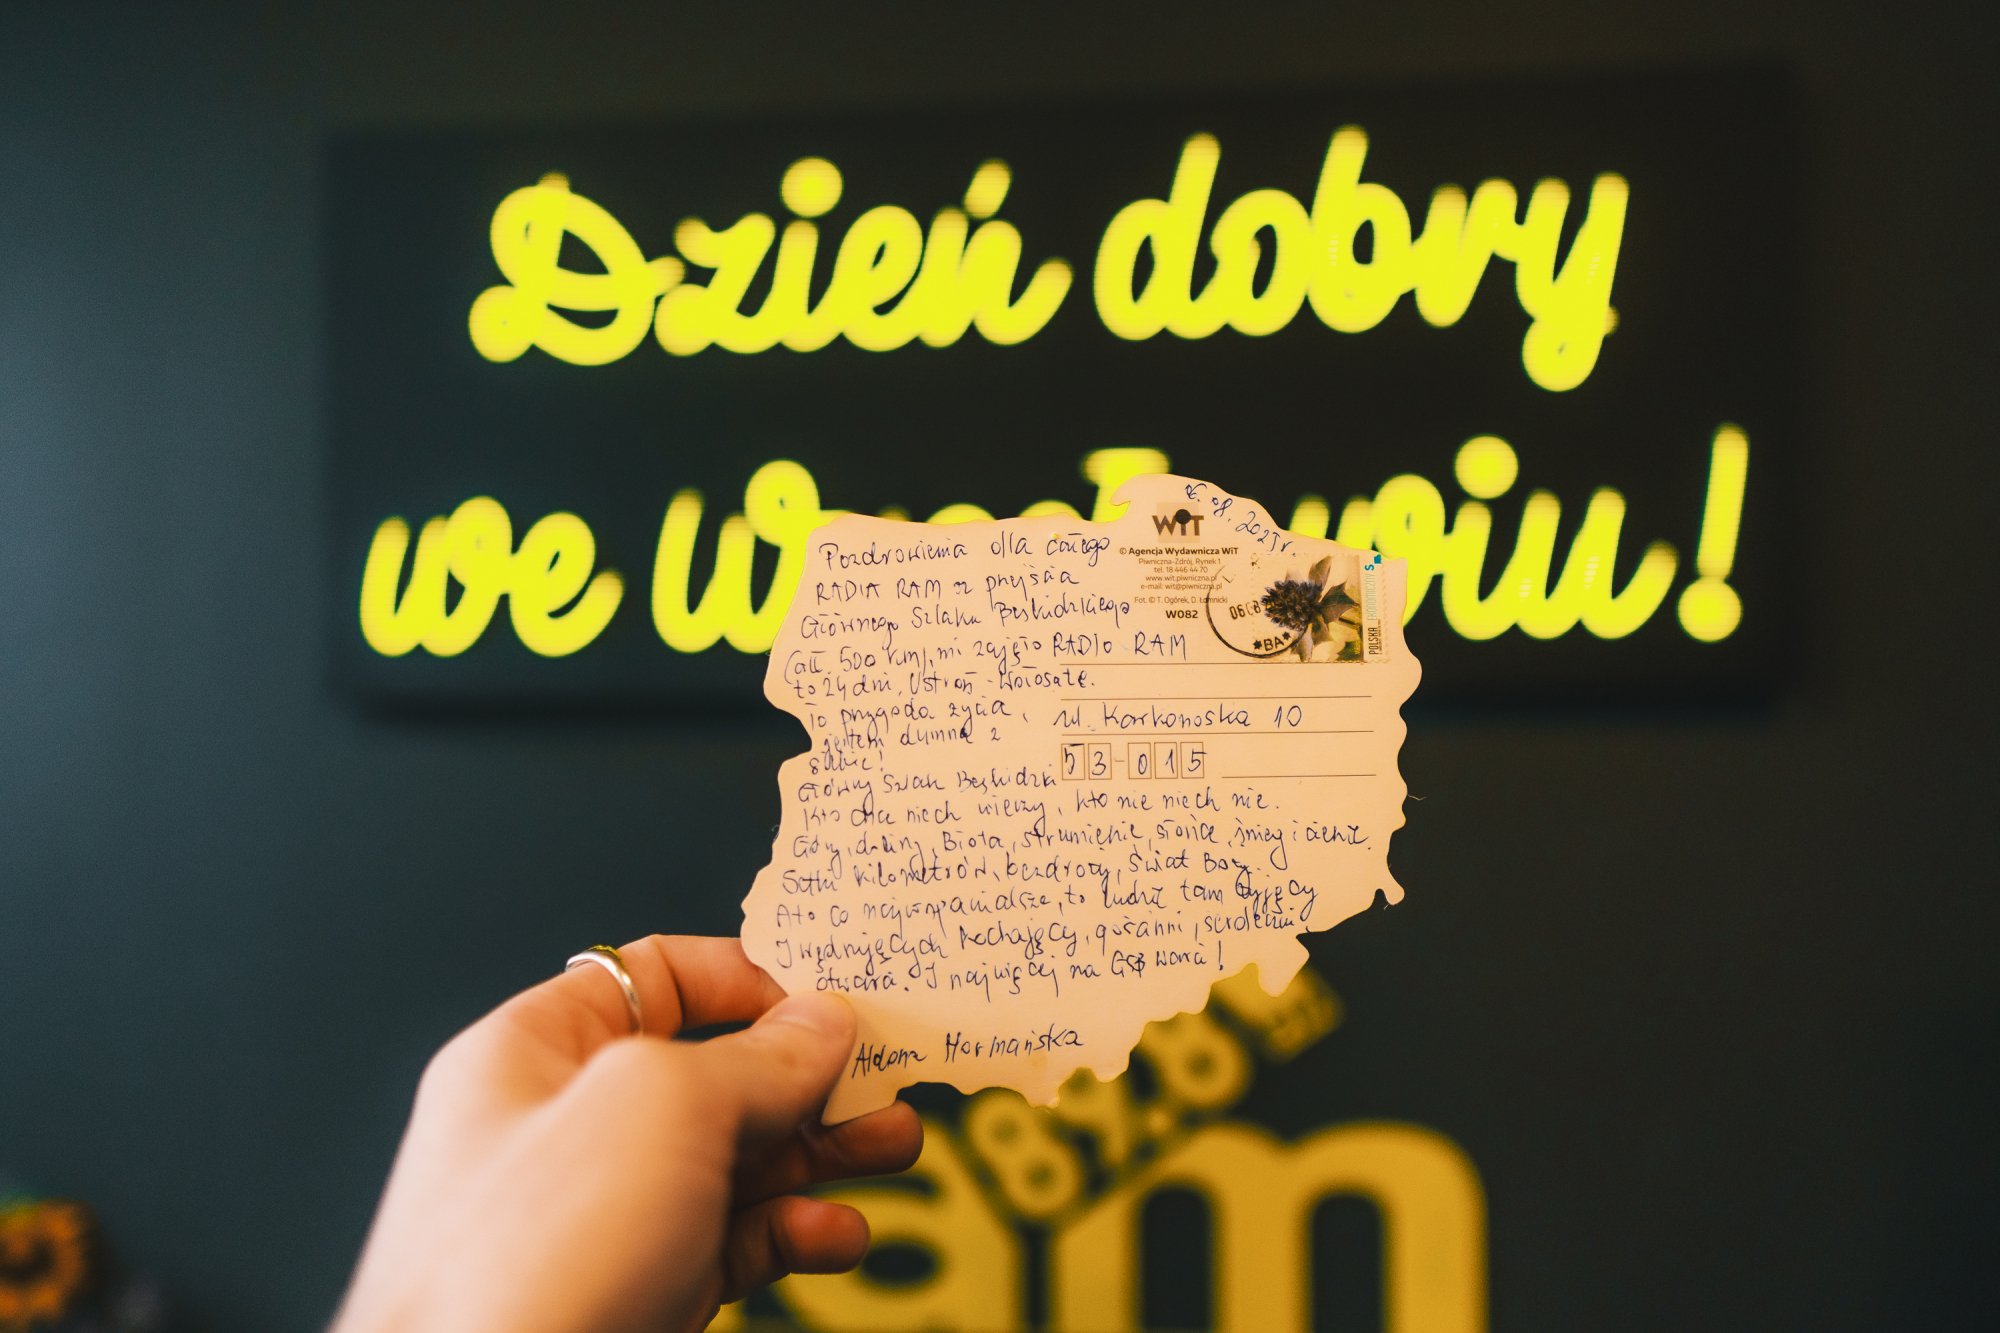 Dzień dobry
we W wiu!
06.08.2025 r.
WiT
© Agencja Wydawnicza WiT
Piwniczna-Zdrój, Rynek 1
tel. 18 446 44 70
www.wit.piwniczna.pl
e-mail: wit@piwniczna.pl
Fot. © T. Ogórek, D. Łomnicki
W082
POLSKA EKONOMICZNY S
06 08
*BA*
Pozdrowienia dla całego
RADIA RAM z przejścia
Głównego Szlaku Beskidzkiego
(ałł. 500 km), mi zajęło
to 24 dni, Ustroń - Wołosate.
To przygoda życia,
jestem dumna z
siebie!
RADIO RAM
ul. Karkonoska 10
53-015
Główny Szlak Beskidzki
Kto chce niech wierzy, kto nie niech nie.
Góry, doliny, błota, strumienie, słońce, śnieg i cienie.
Setki kilometrów, bezdroży, świat Boży.
A to co najwspanialsze, to ludzie tam żyjący
I wędrujących kochający, gościnni, serdeczni,
otwarci. I najwięcej na GSB warci!
Aldona Hormańska
89,8
am